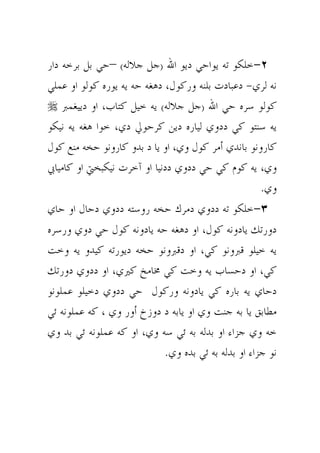 ٢-خلكو ته يواحي ديو الله (جل جلاله) –حي بل برخه دار
نه لري- دعبادت بلنه وركول، دهغه حه يه يوره كولو او عملي
كولو سره حي الله (جل جلاله) يه خيل كتاب، او دييغمبر ﷺ
يه سنتو كي ددوي لياره دين كرحولي دي، خوا هغه يه نيكو
كارونو باندي أمر كول وي، او يا د بدو كارونو حخه منع كول
وي، يه كوم كي حي ددوي ددنيا او آخرت نيكبختي او كاميابي
وي.
٣-خلكو ته ددوي دمرك حخه روسته ددوي دحال او حاي
دورتك يادونه كول، او دهغه حه يادونه كول حي دوي ورسره
يه خيلو قبرونو كي، او دقبرونو حخه ديورته كيدو يه وخت
كي، او دحساب يه وخت كي مخامخ كبري، او ددوي دورتك
دحاي يه باره كي يادونه وركول حي ددوي دخيلو عملونو
مطابق يا به جنت وي او يابه د دوزخ أور وي ، كه عملونه ئي
خه وي جزاء او بدله به ئي سه وي، او كه عملونه ئي بد وي
نو جزاء او بدله به ئي بده وي.